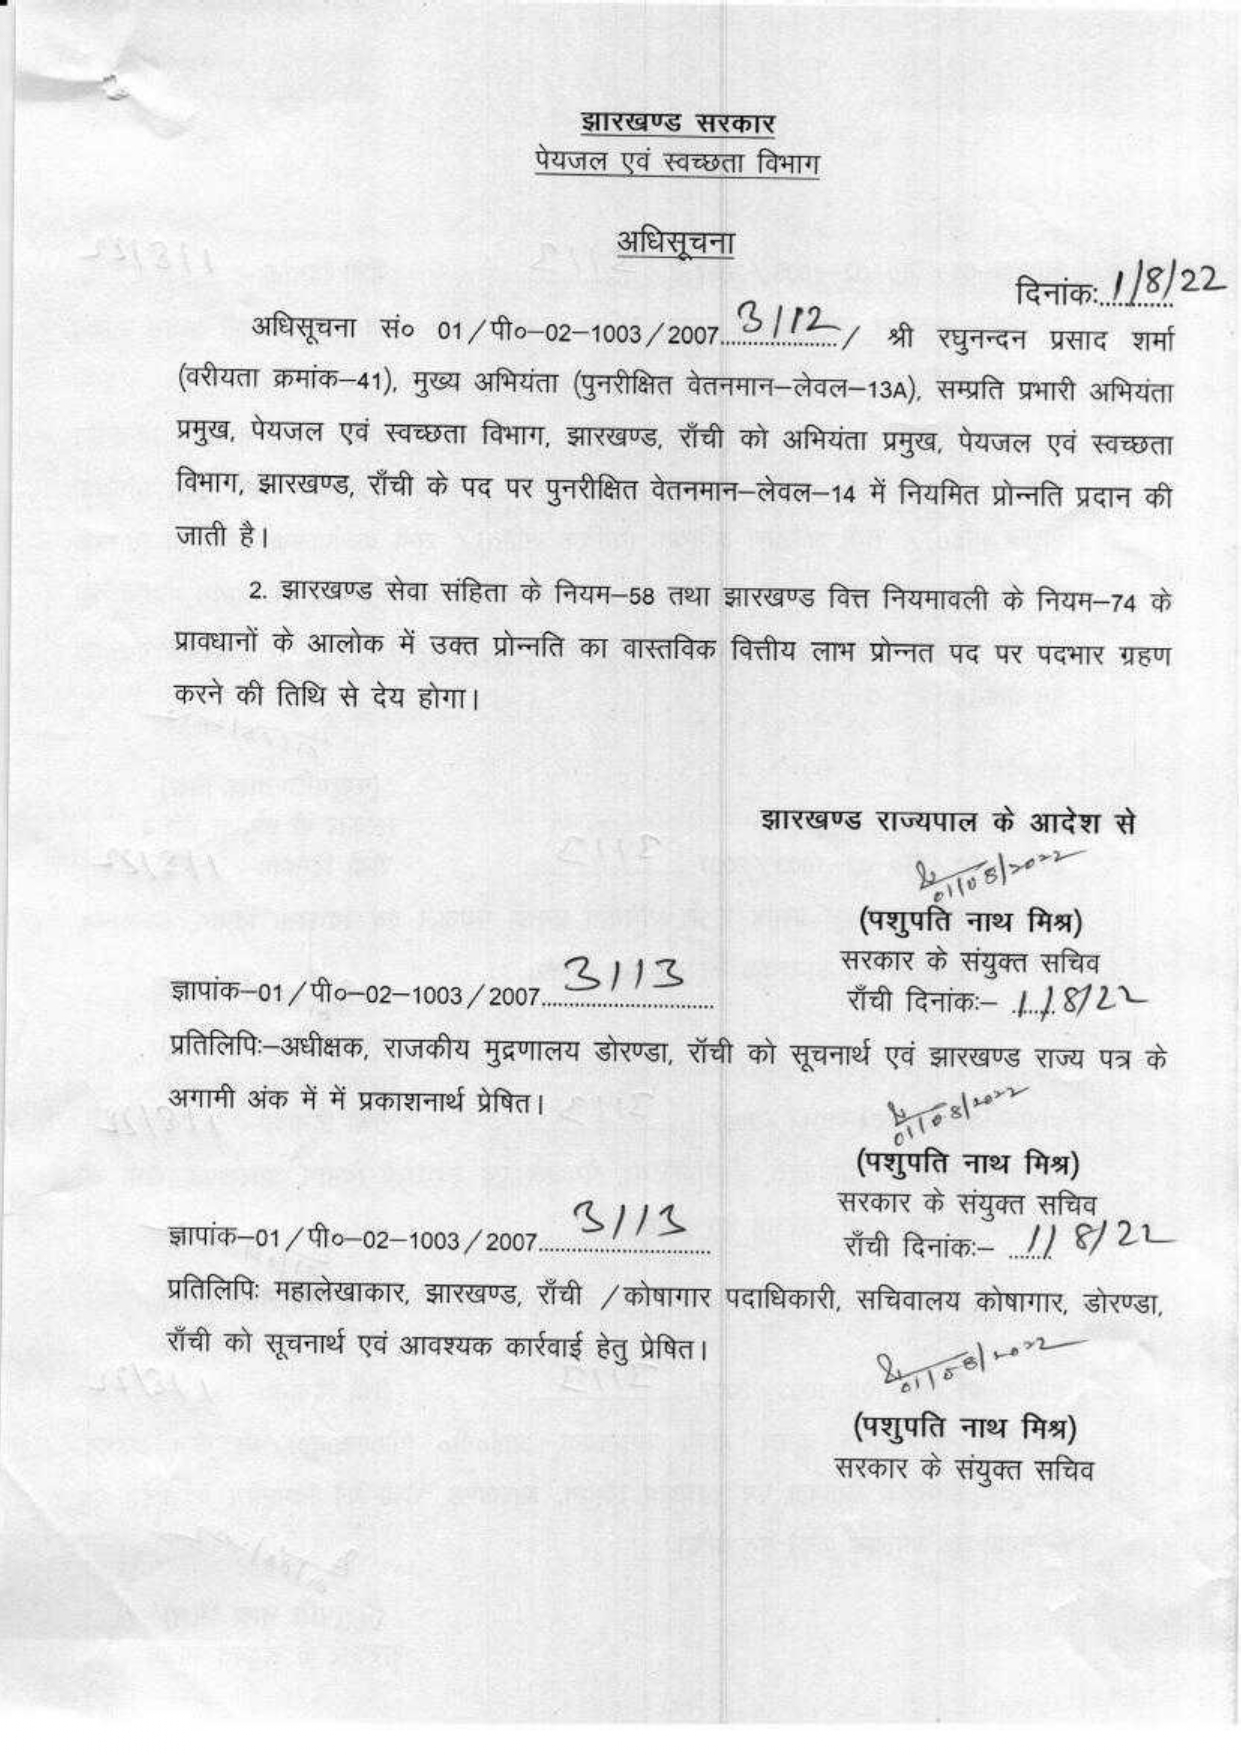 झारखण्ड सरकार
पेयजल एवं स्वच्छता विभाग
अधिसूचना
दिनांक:.1/8/22
अधिसूचना सं० 01/पी०-02-1003/2007..3112../ श्री रघुनन्दन प्रसाद शर्मा
(वरीयता क्रमांक-41), मुख्य अभियंता (पुनरीक्षित वेतनमान-लेवल-13A), सम्प्रति प्रभारी अभियंता
प्रमुख, पेयजल एवं स्वच्छता विभाग, झारखण्ड, राँची को अभियंता प्रमुख, पेयजल एवं स्वच्छता
विभाग, झारखण्ड, राँची के पद पर पुनरीक्षित वेतनमान-लेवल-14 में नियमित प्रोन्नति प्रदान की
जाती है।
2. झारखण्ड सेवा संहिता के नियम-58 तथा झारखण्ड वित्त नियमावली के नियम-74 के
प्रावधानों के आलोक में उक्त प्रोन्नति का वास्तविक वित्तीय लाभ प्रोन्नत पद पर पदभार ग्रहण
करने की तिथि से देय होगा।
झारखण्ड राज्यपाल के आदेश से
01/08/2022
(पशुपति नाथ मिश्र)
सरकार के संयुक्त सचिव
ज्ञापांक-01/पी०-02-1003/2007..3113..
राँची दिनांक:- 1/8/22
प्रतिलिपि:-अधीक्षक, राजकीय मुद्रणालय डोरण्डा, रॉची को सूचनार्थ एवं झारखण्ड राज्य पत्र के
अगामी अंक में में प्रकाशनार्थ प्रेषित।
01/08/2022
(पशुपति नाथ मिश्र)
सरकार के संयुक्त सचिव
ज्ञापांक-01/पी०-02-1003/2007..3113..
राँची दिनांक:- 1/8/22
प्रतिलिपिः महालेखाकार, झारखण्ड, राँची /कोषागार पदाधिकारी, सचिवालय कोषागार, डोरण्डा,
राँची को सूचनार्थ एवं आवश्यक कार्रवाई हेतु प्रेषित।
01/08/2022
(पशुपति नाथ मिश्र)
सरकार के संयुक्त सचिव